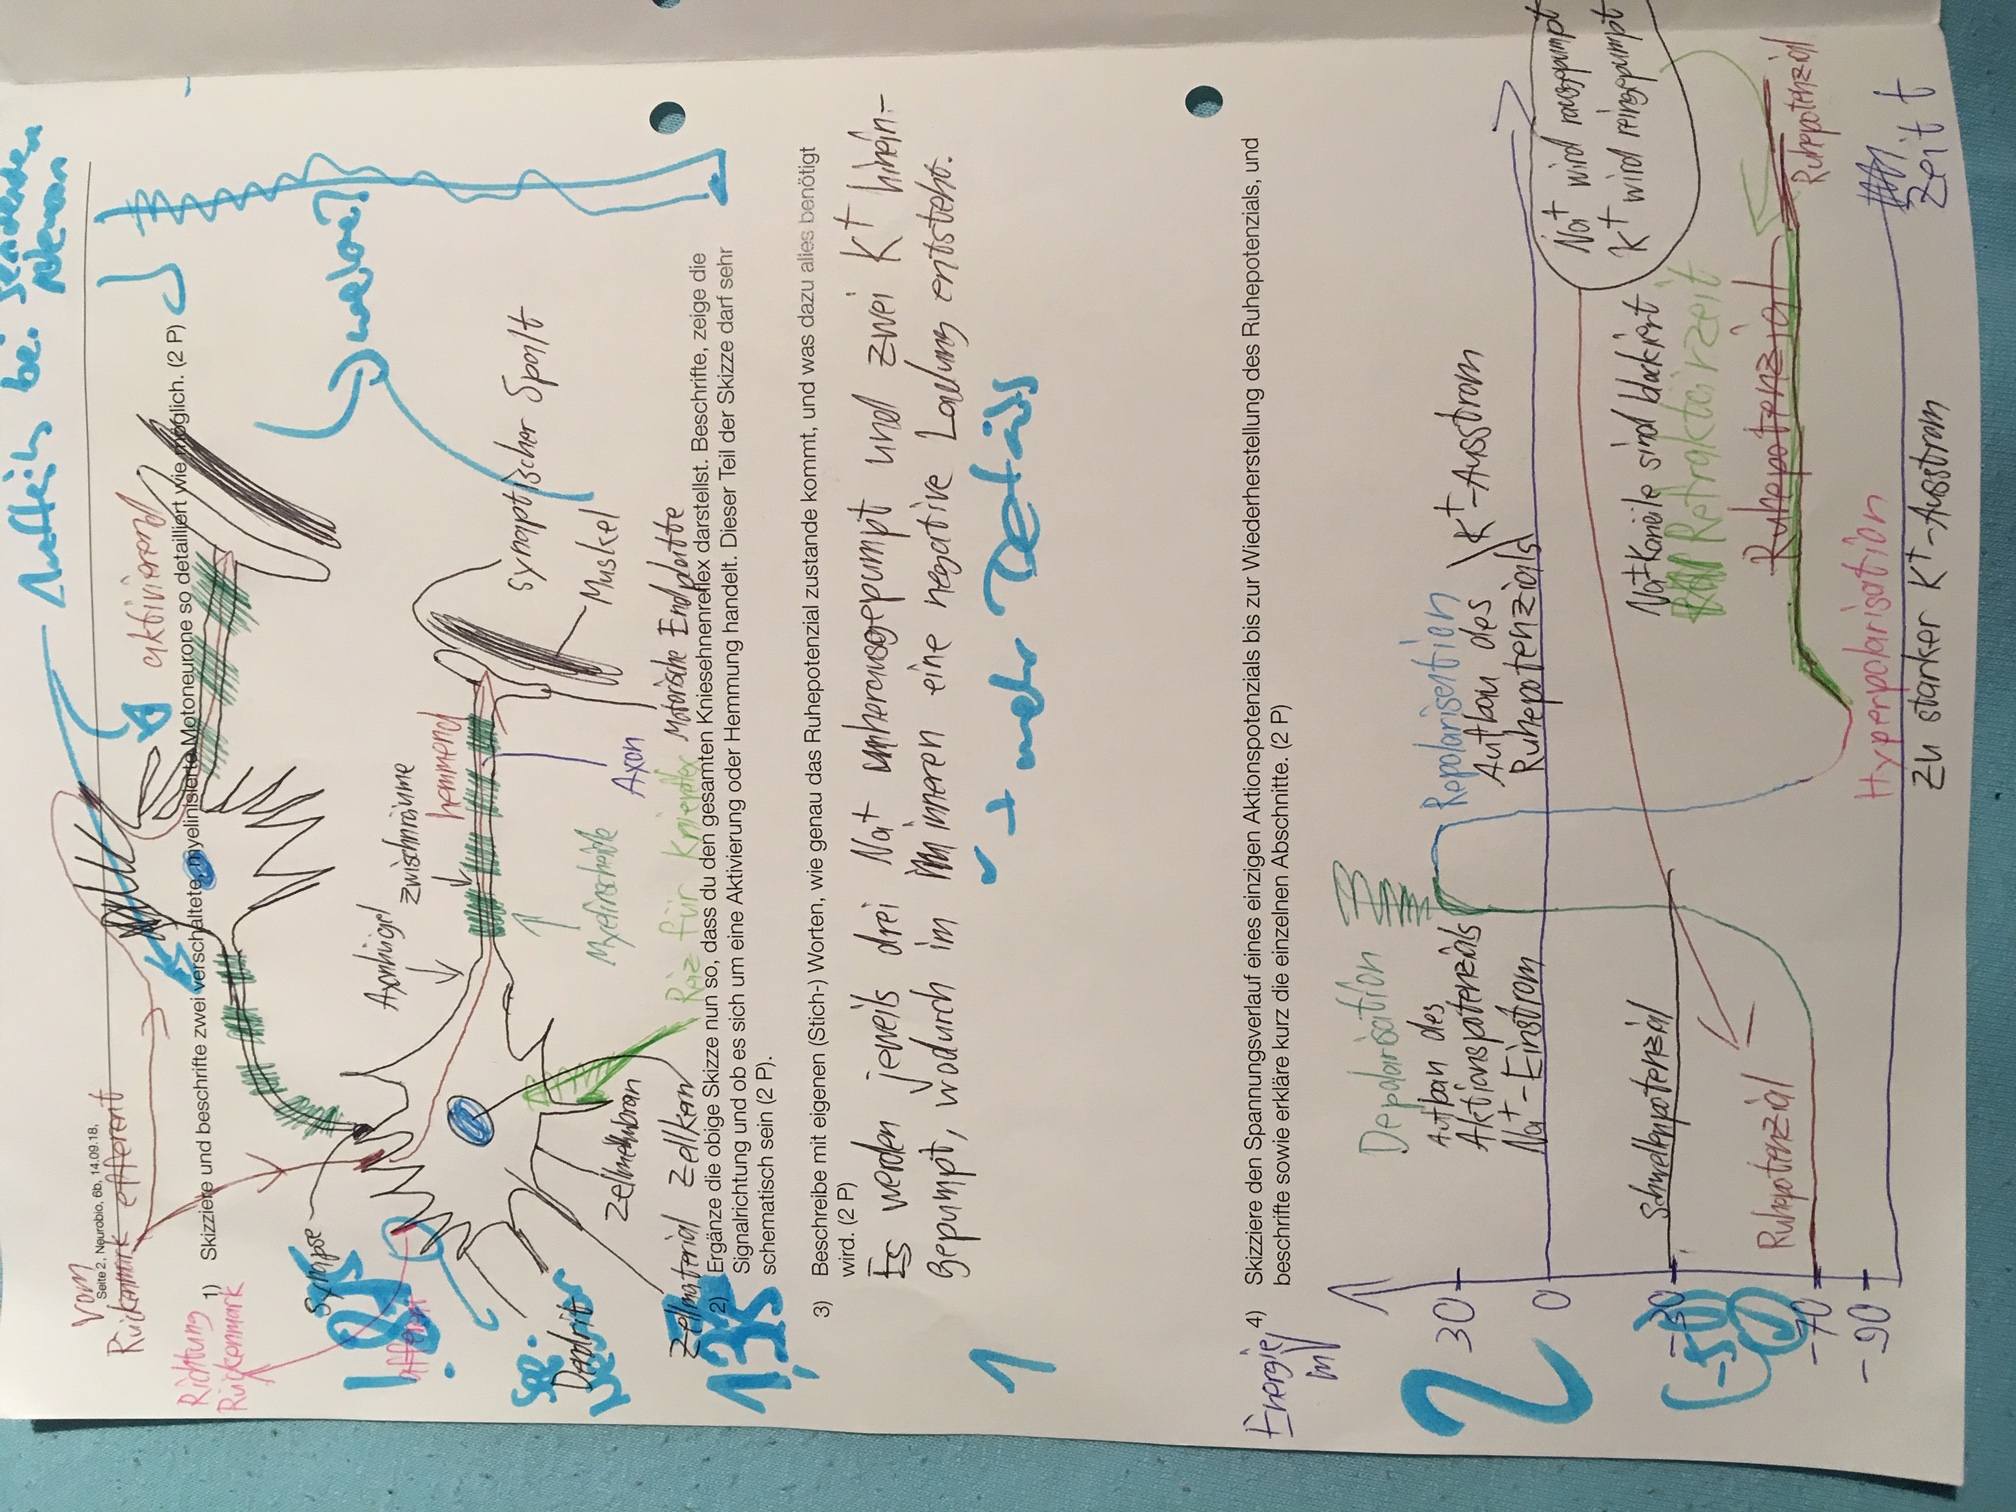 bei
Vom
Seite 2, Neurobio, 6b, 14.09.18,
Rückenmark efferent
aktivierend
Richtung
Rückenmark
1) Skizziere und beschrifte zwei verschaltete, myelinisierte Motoneurone so detailliert wie möglich. (2 P)
Synapse
welche?
Axonhügel
zwischnräume
hemmend
afferent
synaptischer Spalt
Dendrit
Neuron
Myelinscheide
Muskel
Zellmembran
Axon
Zellmaterial Zellkern
Reiz für Kniereflex Motorische Endplatte
2) Ergänze die obige Skizze nun so, dass du den gesamten Kniesehnenreflex darstellst. Beschrifte, zeige die
Signalrichtung und ob es sich um eine Aktivierung oder Hemmung handelt. Dieser Teil der Skizze darf sehr
schematisch sein (2 P).
3) Beschreibe mit eigenen (Stich-) Worten, wie genau das Ruhepotenzial zustande kommt, und was dazu alles benötigt
wird. (2 P)
Es werden jeweils drei Na+ herausgepumpt und zwei K+ hinein-
gepumpt, wodurch im inneren eine negative Ladung entsteht.
1
✓ + mehr Details
4) Skizziere den Spannungsverlauf eines einzigen Aktionspotenzials bis zur Wiederherstellung des Ruhepotenzials, und
beschrifte sowie erkläre kurz die einzelnen Abschnitte. (2 P)
Energie
in V
2
Depolarisation
Aufbau des
Aktionspotenzials
Na+-Einstrom
Repolarisation
Aufbau des
Ruhepotenzials
K+-Ausstrom
30
0
Na+ wird rausgepumpt
K+ wird reingepumpt
Schwellenpotenzial
-30
(-50)
Na+-Kanäle sind blockiert
Retraktärzeit
Ruhepotenzial
Ruhepotenzial
Ruhepotenzial
-70
-90
Hyperpolarisation
zu starker K+-Ausstrom
Zeit t